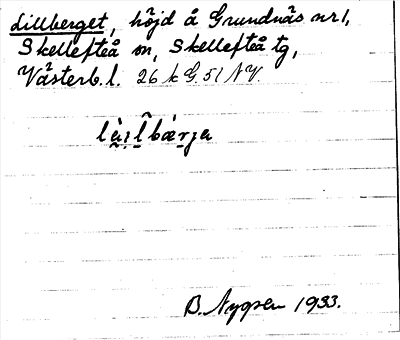 Lillberget, höjd å Grundnäs nr 1,
Skellefteå sn, Skellefteå tg,
Västerb. l. 26 k G. 51 NV.
B. Nygren 1933.